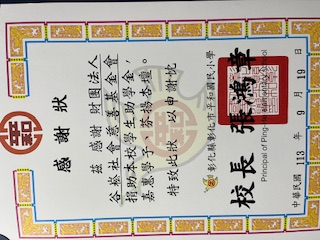 感謝狀
茲感謝 財團法人
谷崧社會慈善基金會
捐助本校學生助學金,
嘉惠學子、榮揚杏壇。
特致此狀,以申謝忱
彰化縣彰化市平和國民小學
校長 張鴻章
Principal of Ping-
中華民國 113 年 9 月 19 日